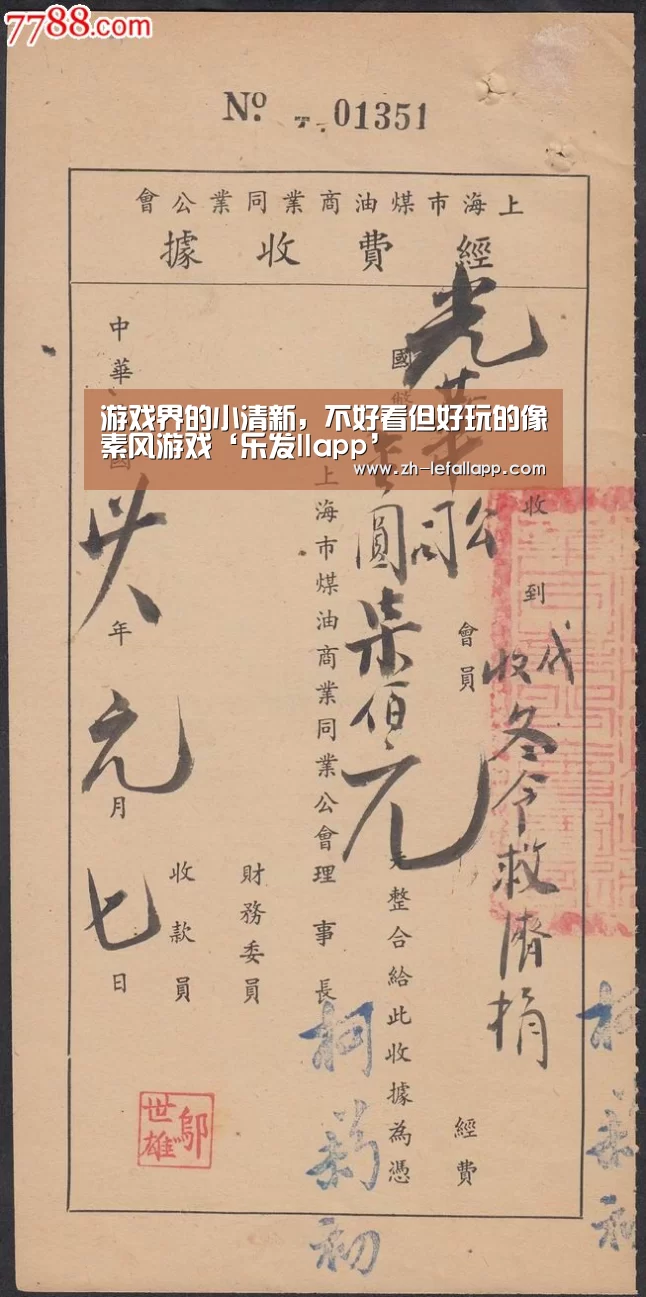 7788.com
No. T. 01351
上海市煤油商業同業公會
經費收據
光華公司
會員
收到
代收冬令救濟捐
經費
國
圓柒佰元
整合給此收據為憑
上海市煤油商業同業公會理事長
柯菊初
財務委員
收款員
鄔世雄
中華國卅八年元月七日
游戏界的小清新，不好看但好玩的像
素风游戏‘乐发llapp’
www.zh-lefallapp.com